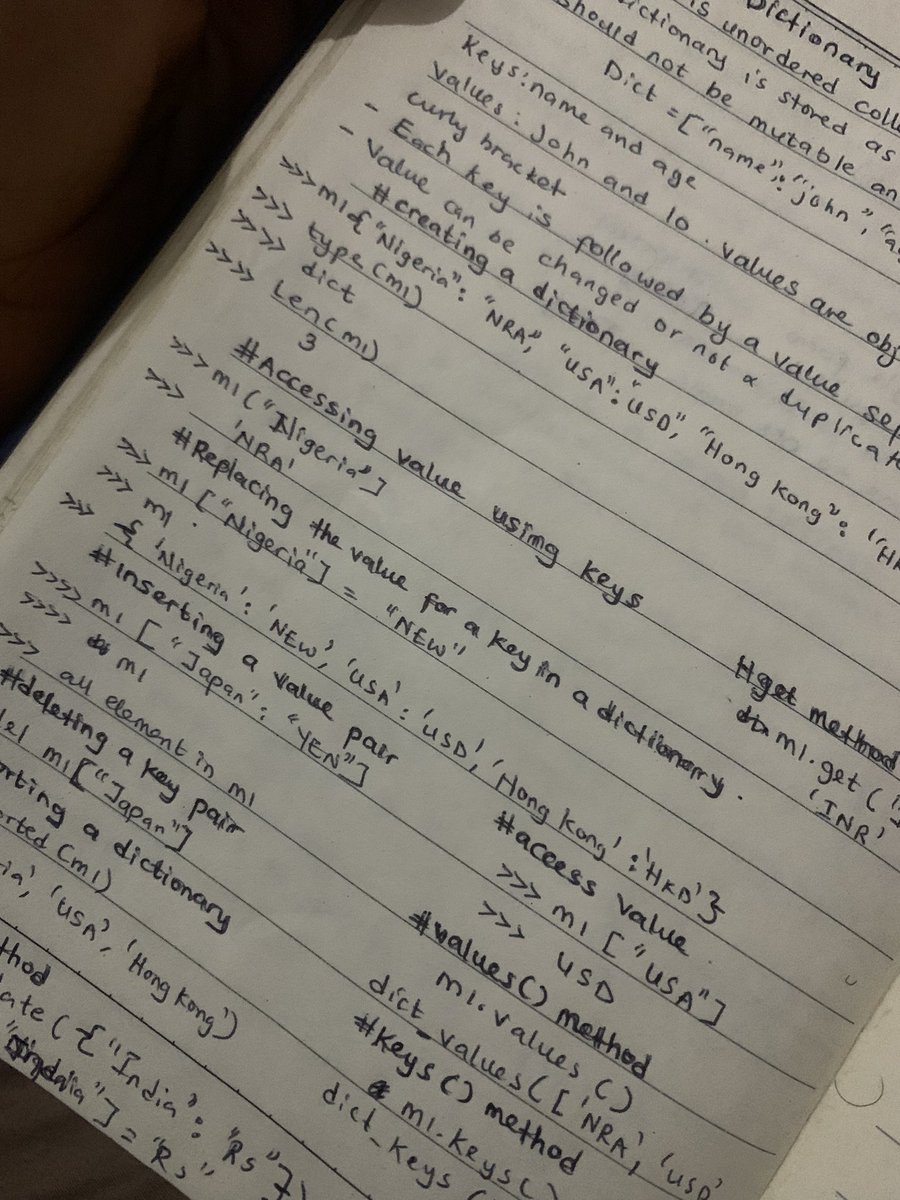 Dictionary
is unordered
dictionary is stored as
should not be mutable
Dict = ["name": "john",
Keys: name and age
Values: john and 10. Values are
- curly bracket
- Each key is followed by a value
Value can be changed or not a
#creating a dictionary
>>> m1{"Nigeria": "NRA", "USA": "USD", "Hong Kong":
>>> type(m1)
>>>> dict
>>>> Len(m1)
3
#Accessing value using keys
>>> m1("Nigeria"]
>>> 'NRA'
#Replacing the value for a key in a dictionary.
>>> m1["Nigeria"] = "NEW"
>>> m1.
>>> { 'Nigeria': 'NEW', 'USA': 'USD', 'Hong Kong': 'HKD'}
#inserting a value pair
>>>> m1["Japan": "YEN"]
>>>> m1
>>> all element in m1
#deleting a key pair
m1["Japan"]
a dictionary
(m1)
'USA', 'Hong Kong')
({"India": "Rs"})
] = "Rs"
#get method
m1.get(
'INR'
#access value
>>> m1["USA"]
>>> USD
#values() method
m1.values()
dict_values(['NRA', 'USD'
#Keys() method
m1.keys()
dict_keys(